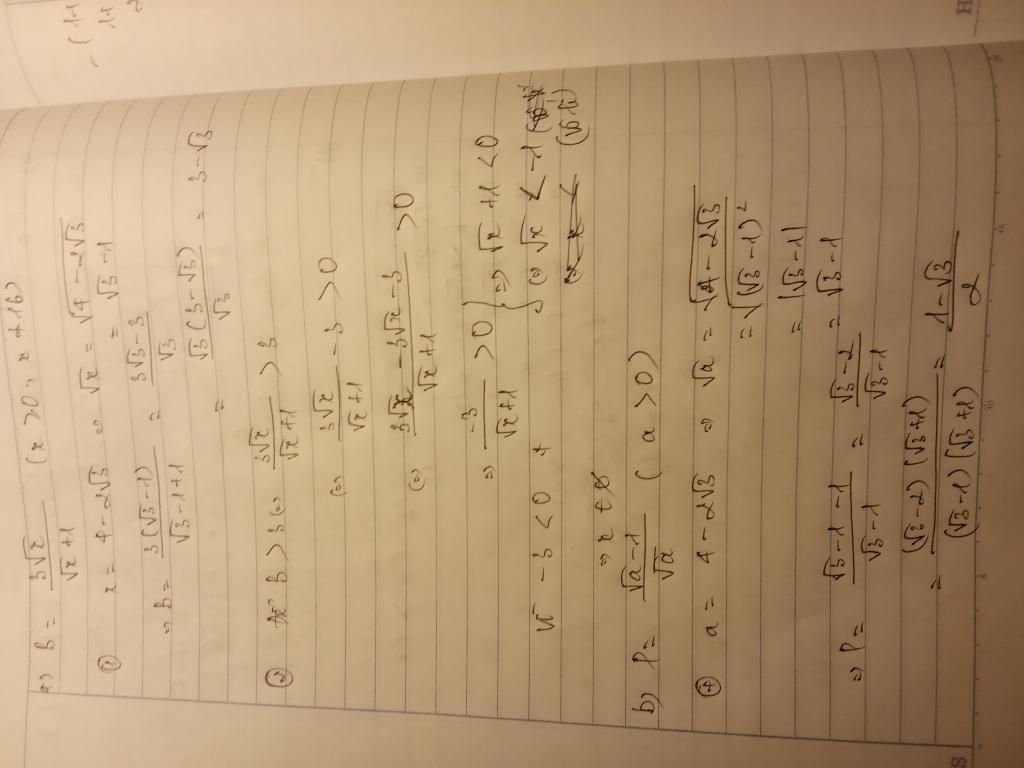 a) B = 3√x / (√x + 1) (x > 0, x ≠ 16)
① x = 4 - 2√3 ⇒ √x = √(4 - 2√3)
= √3 - 1
⇒ B = 3(√3 - 1) / (√3 - 1 + 1) = (3√3 - 3) / √3
= √3(3 - √3) / √3 = 3 - √3
② B > 3 ⇔ 3√x / (√x + 1) > 3
⇔ 3√x / (√x + 1) - 3 > 0
⇔ (3√x - 3√x - 3) / (√x + 1) > 0
⇒ -3 / (√x + 1) > 0 } ⇒ √x + 1 < 0
Vì - 3 < 0 + } ⇔ √x < -1 (vô lí)
⇒ x ∈ ∅
b) P = (√a - 1) / √a (a > 0)
⊕ a = 4 - 2√3 ⇒ √a = √(4 - 2√3)
= √(√3 - 1)²
= |√3 - 1|
= √3 - 1
⇒ P = (√3 - 1 - 1) / (√3 - 1) = (√3 - 2) / (√3 - 1)
= (√3 - 2)(√3 + 1) / (√3 - 1)(√3 + 1) = (1 - √3) / 2